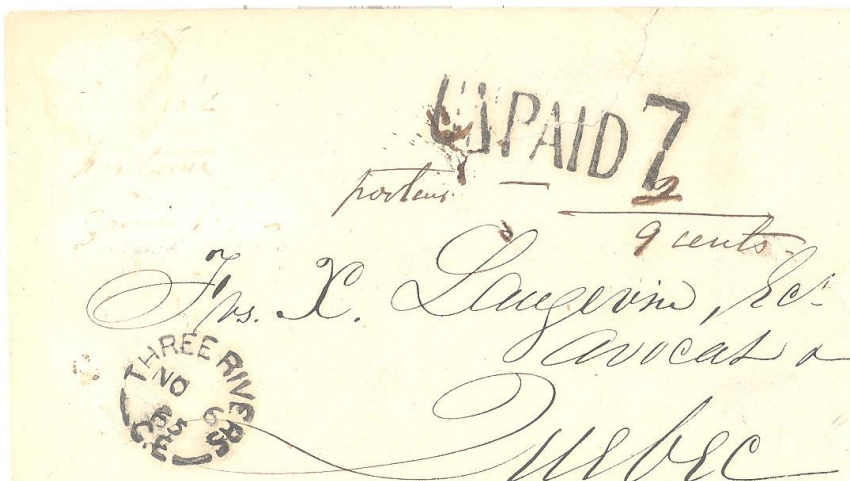 UNPAID 7
porteur — 2
9 cents
Frs. X. Langevin, Ecr
avocat a
Quebec
THREE RIVERS
NO 6
65
C.E